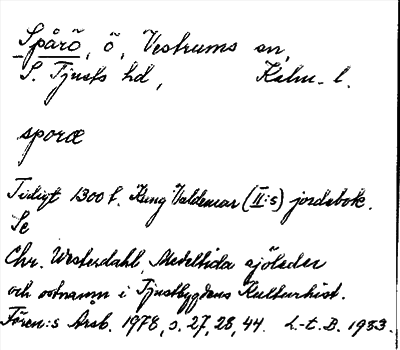 Spårö, ö, Vestrums sn,
S. Tjusts hd, Kalm. l.
sporæ
Tidigt 1300 t. Kung Valdemar (II:s) jordebok.
Se
Chr. Westerdahl, Medeltida sjöleder
och ortnamn i Tjustbygdens Kulturhist.
Fören:s Årsb. 1978, s. 27, 28, 44. L-t. B. 1983.